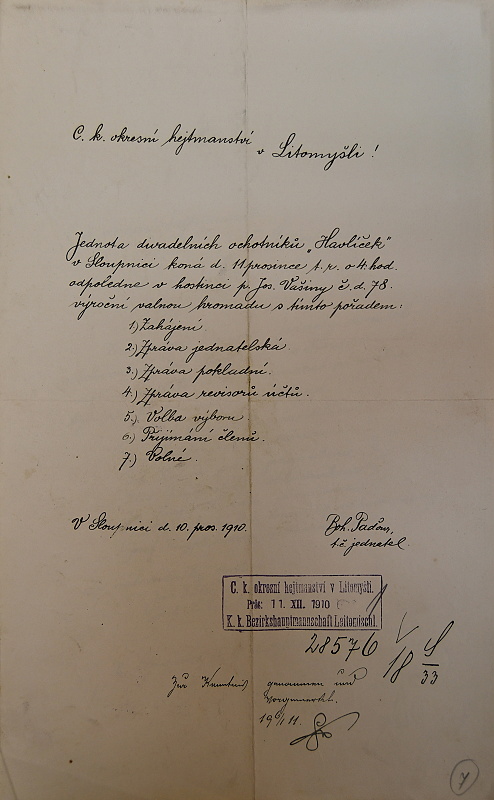 C. k. okresní hejtmanství
v Litomyšli!
Jednota divadelních ochotníků „Havlíček"
v Sloupnici koná d. 11 prosince t. r. o 4. hod.
odpoledne v hostinci p. Jos. Vašiny č. d. 78.
výroční valnou hromadu s tímto pořadem:
1.) Zahájení.
2.) Zpráva jednatelská.
3.) Zpráva pokladní.
4.) Zpráva revisorů účtů.
5.) Volba výboru.
6.) Přijímání členů.
7.) Volné.
V Sloupnici d. 10. pros. 1910.
Boh.
t. č. jednatel.
C. k. okresní hejtmanství v Litomyšli.
Präs: 11. XII. 1910
K. k. Bezirkshauptmannschaft Leitomischl.
28576
18
33
Zur Kenntnis genommen und
vorgemerkt.